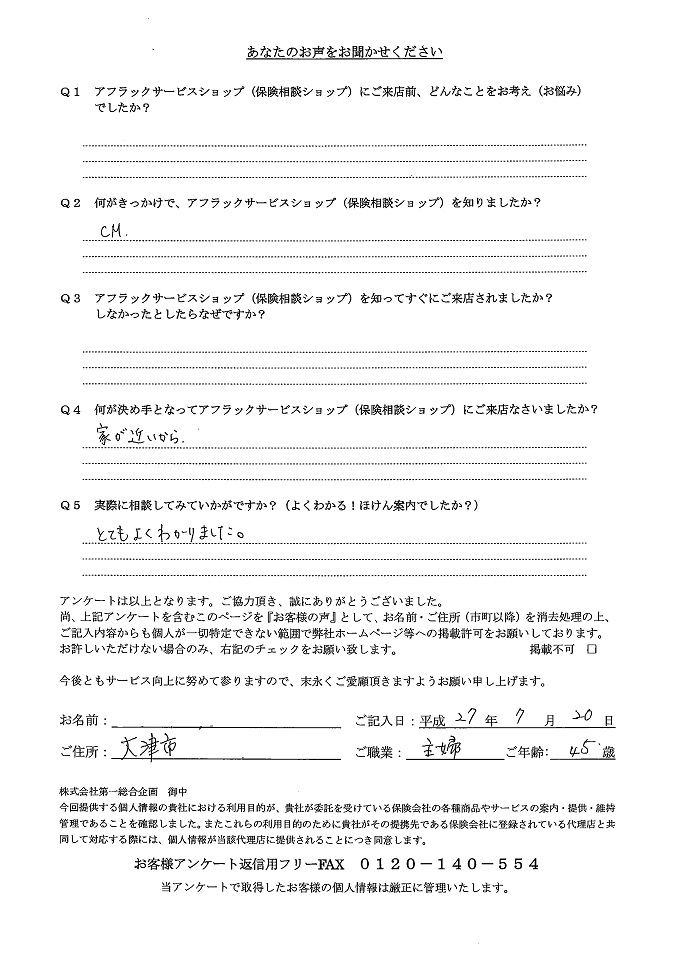 あなたのお声をお聞かせください
Q1 アフラックサービスショップ（保険相談ショップ）にご来店前、どんなことをお考え（お悩み）
でしたか？
Q2 何がきっかけで、アフラックサービスショップ（保険相談ショップ）を知りましたか？
CM.
Q3 アフラックサービスショップ（保険相談ショップ）を知ってすぐにご来店されましたか？
しなかったとしたらなぜですか？
Q4 何が決め手となってアフラックサービスショップ（保険相談ショップ）にご来店なさいましたか？
家が近いから.
Q5 実際に相談してみていかがですか？（よくわかる！ほけん案内でしたか？）
とてもよくわかりました。
アンケートは以上となります。ご協力頂き、誠にありがとうございました。
尚、上記アンケートを含むこのページを『お客様の声』として、お名前・ご住所（市町以降）を消去処理の上、
ご記入内容からも個人が一切特定できない範囲で弊社ホームページ等への掲載許可をお願いしております。
お許しいただけない場合のみ、右記のチェックをお願い致します。 掲載不可 □
今後ともサービス向上に努めて参りますので、末永くご愛顧頂きますようお願い申し上げます。
お名前： ご記入日：平成 27 年 7 月 20 日
ご住所： 大津市 ご職業： 主婦 ご年齢： 45 歳
株式会社第一総合企画 御中
今回提供する個人情報の貴社における利用目的が、貴社が委託を受けている保険会社の各種商品やサービスの案内・提供・維持
管理であることを確認しました。またこれらの利用目的のために貴社がその提携先である保険会社に登録されている代理店と共
同して対応する際には、個人情報が当該代理店に提供されることにつき同意します。
お客様アンケート返信用フリーFAX 0120－140－554
当アンケートで取得したお客様の個人情報は厳正に管理いたします。